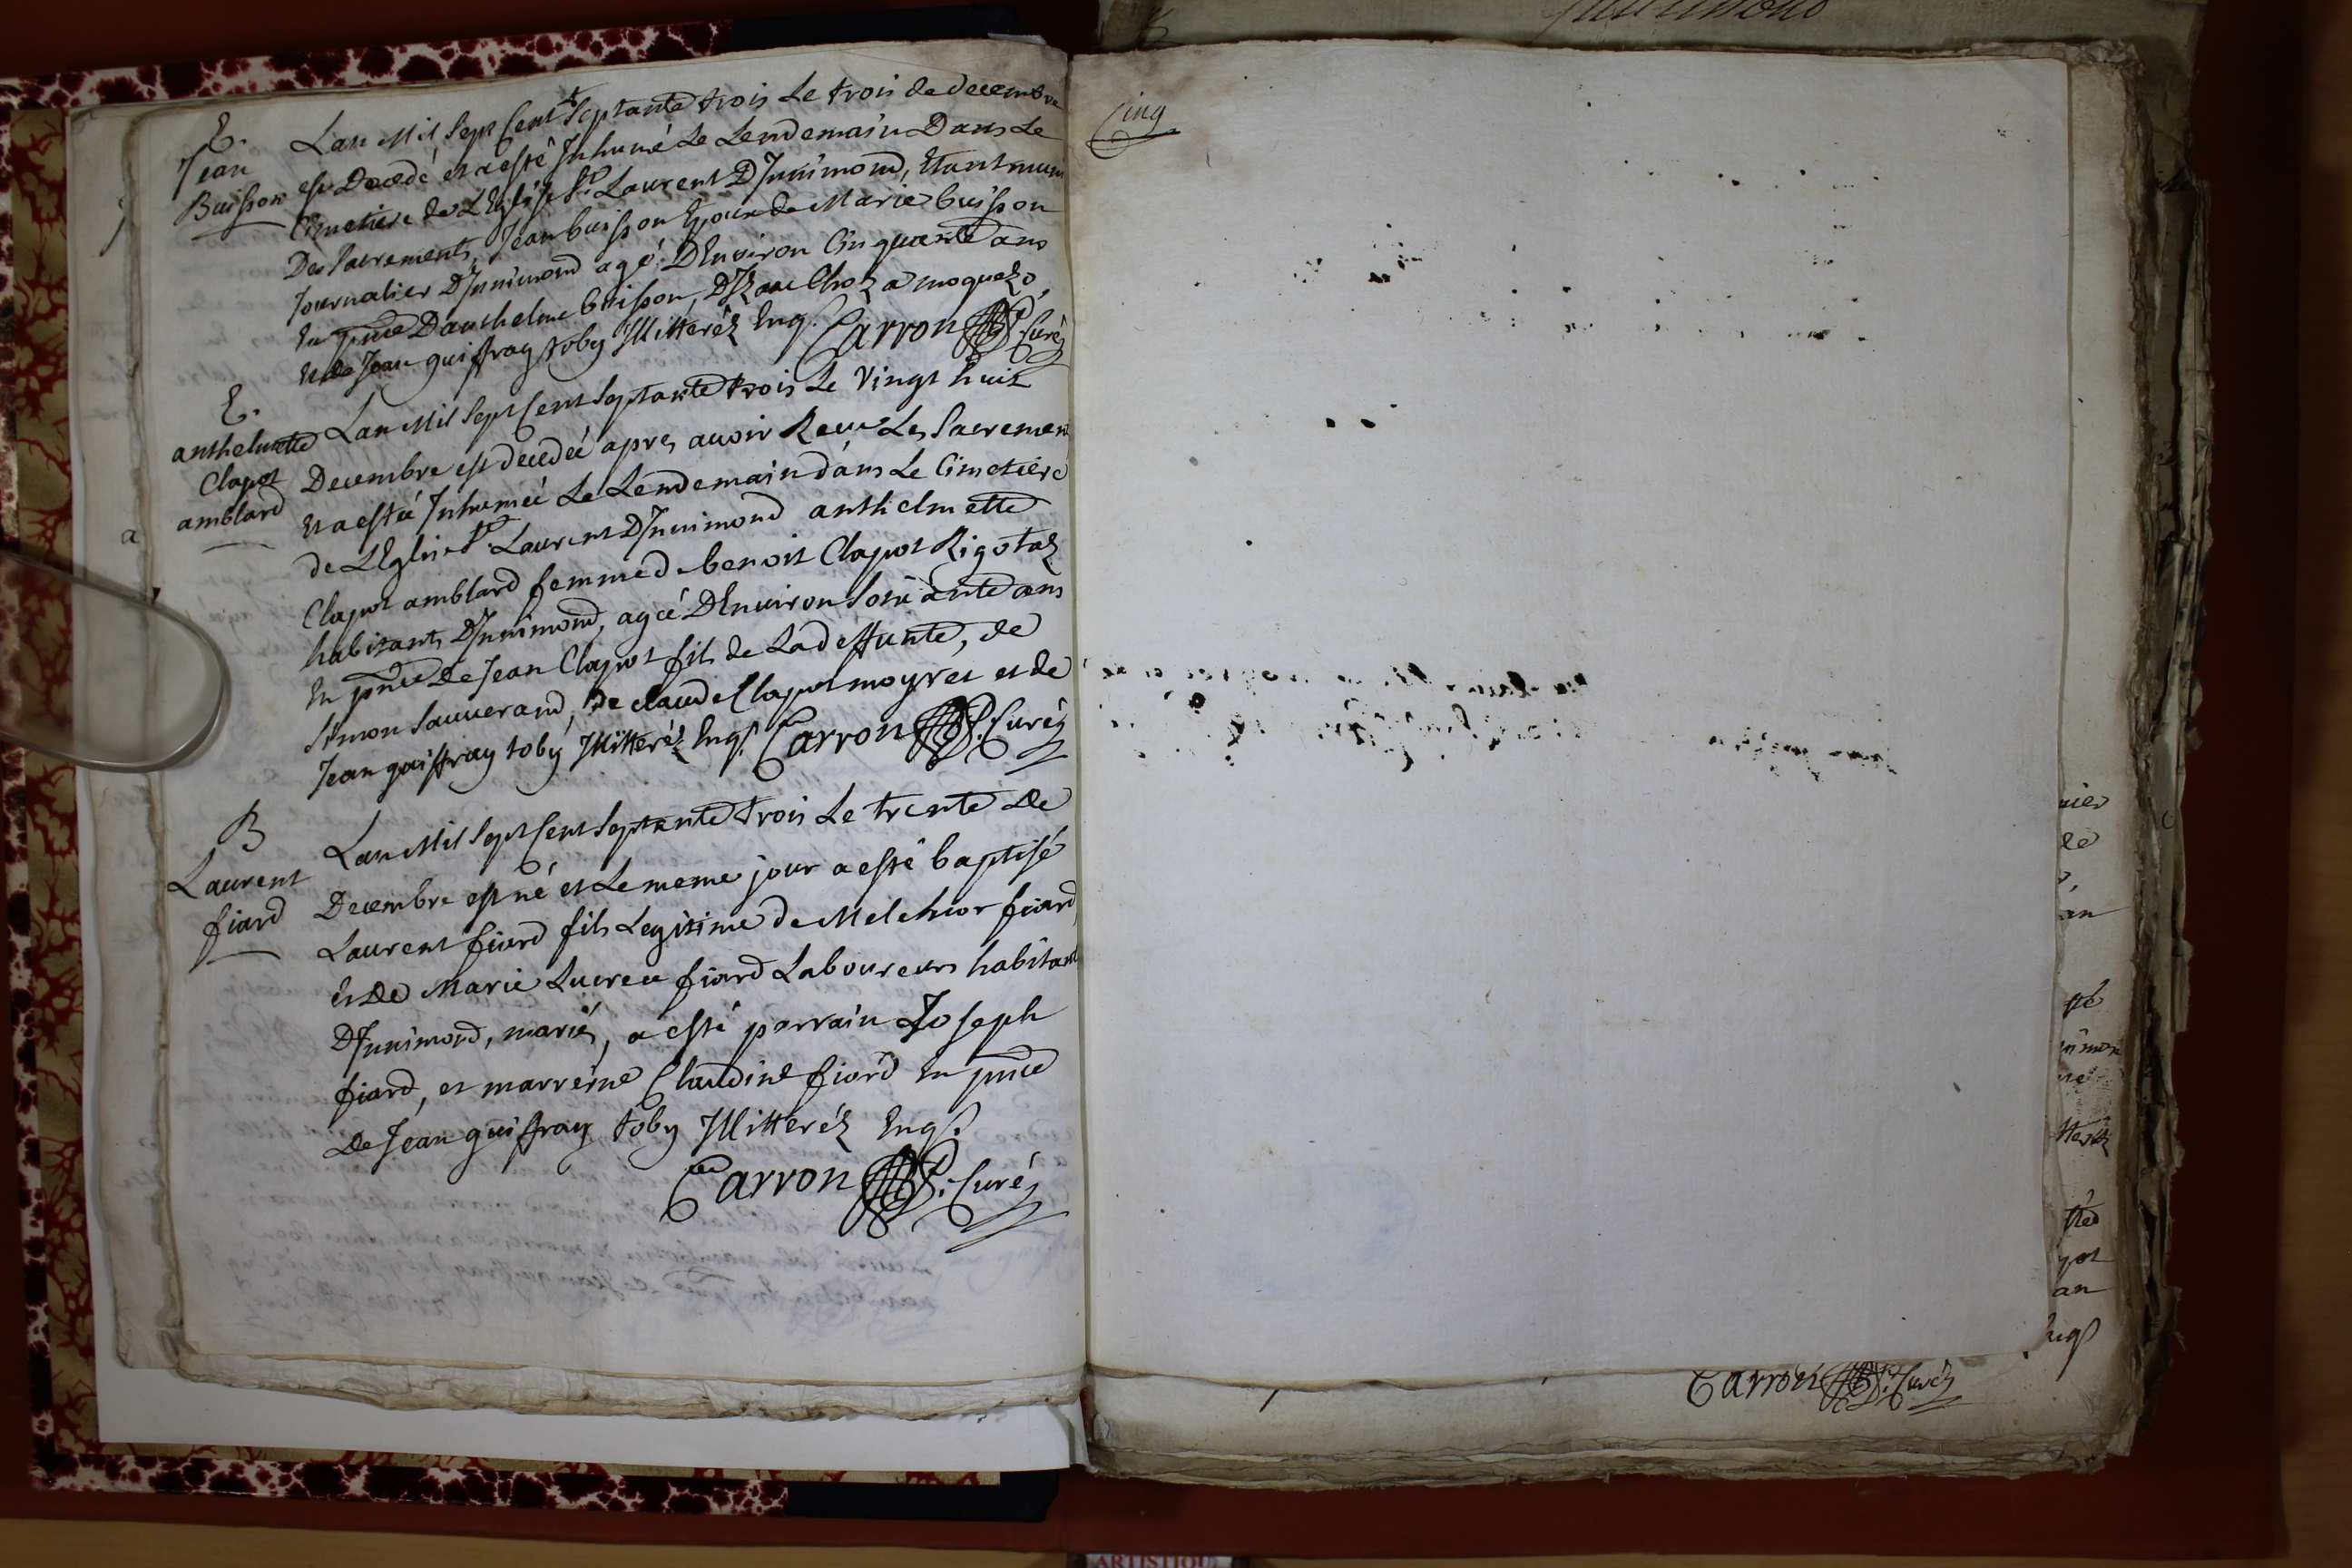 E.
Jean
Buisson
Lan Mil Sept Cent Septante trois Le trois de decembre
est Decedé et a esté Inhumé Le Lendemain Dans Le
Cimetiere de L'Eglise St. Laurent D'Innimond, Etant muni
Des Sacrements, Jean buisson Epoux de Marie buisson
Journalier D'Innimond agé D'Environ Cinquante ans
En pnce Danthelme buisson,
et de Jean guiffray toby Illitteréz Enqs. Carron Curé
E.
anthelmette
Clapot
amblard
Lan Mil Sept Cent Septante trois Le Vingt huit
Decembre est decedée apres avoir Recu Les Sacremen
Et a estée Inhumée Le Lendemain dans Le Cimetiere
de L'Eglise St. Laurent D'Innimond anthelmette
Clapot amblard femme de benoit Clapot Rigotaz
habitants D'Innimond, agée D'Environ Soixante ans
En pnce de Jean Clapot fils de La deffunte, de
Simon Sauverand, de claude Clapot moyret et de
Jean guiffray toby Illitteréz Enqs. Carron Curé
B
Laurent
fiard
Lan Mil Sept Cent Septante trois Le trente de
Decembre est né et Le meme jour a esté baptisé
Laurent fiard fils Legitime de Melchior fiard
Et de Marie Lucrece fiard Laboureurs habitant
D'Innimond, mariés, a esté parrain Joseph
fiard, et marreine Claudine fiard En pnce
de Jean guiffray toby Illitteréz Enqs.
Carron Curé
Cinq
Carron Curé